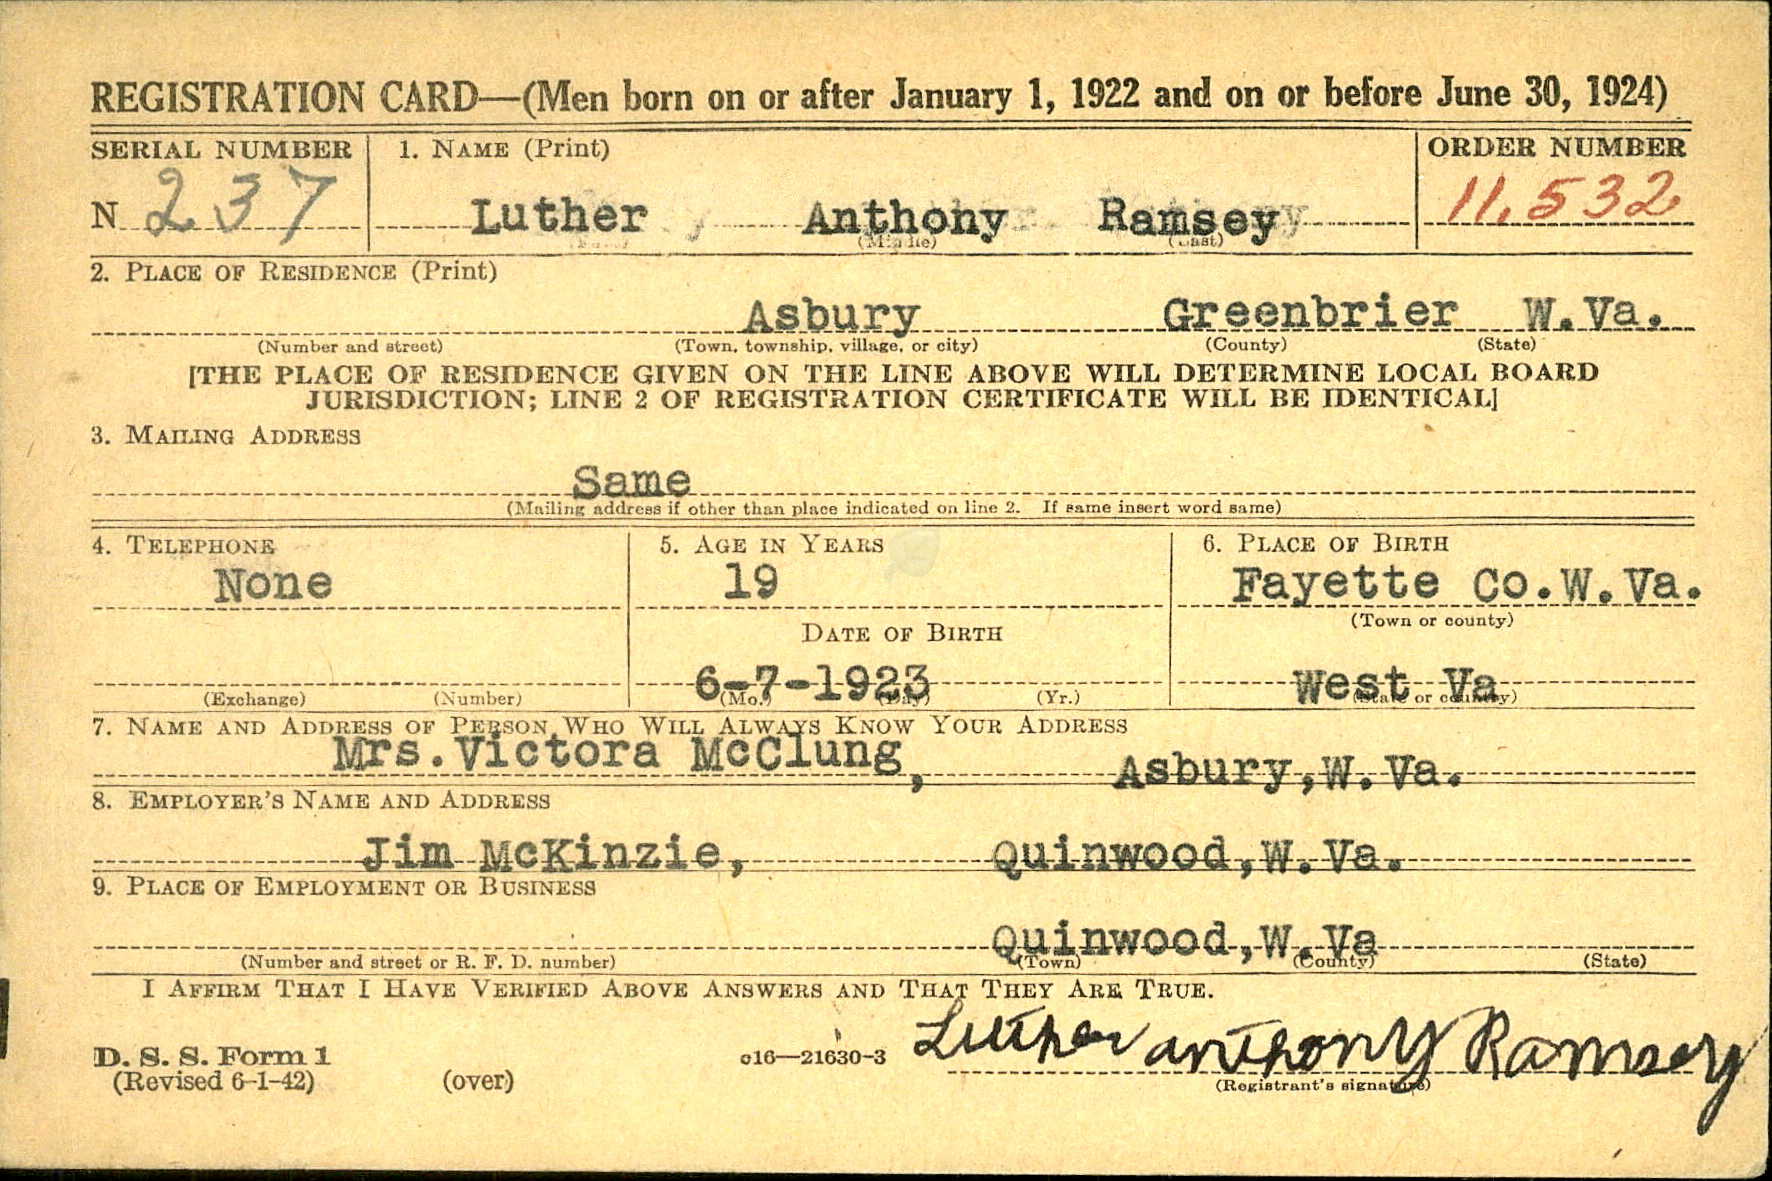 REGISTRATION CARD—(Men born on or after January 1, 1922 and on or before June 30, 1924)
SERIAL NUMBER 1. NAME (Print) ORDER NUMBER
N 237 Luther Anthony Ramsey 11,532
(Middle) (Last)
2. PLACE OF RESIDENCE (Print)
Asbury Greenbrier W.Va.
(Number and street) (Town, township, village, or city) (County) (State)
[THE PLACE OF RESIDENCE GIVEN ON THE LINE ABOVE WILL DETERMINE LOCAL BOARD
JURISDICTION; LINE 2 OF REGISTRATION CERTIFICATE WILL BE IDENTICAL]
3. MAILING ADDRESS
Same
(Mailing address if other than place indicated on line 2. If same insert word same)
4. TELEPHONE 5. AGE IN YEARS 6. PLACE OF BIRTH
None 19 Fayette Co.W.Va.
(Town or county)
DATE OF BIRTH
6-7-1923 West Va
(Exchange) (Number) (Mo.) (Day) (Yr.) (State or country)
7. NAME AND ADDRESS OF PERSON WHO WILL ALWAYS KNOW YOUR ADDRESS
Mrs.Victora McClung, Asbury,W.Va.
8. EMPLOYER'S NAME AND ADDRESS
Jim McKinzie, Quinwood,W.Va.
9. PLACE OF EMPLOYMENT OR BUSINESS
Quinwood,W.Va
(Number and street or R. F. D. number) (Town) (County) (State)
I AFFIRM THAT I HAVE VERIFIED ABOVE ANSWERS AND THAT THEY ARE TRUE.
D. S. S. Form 1 c16—21630-3 Luther anthony Ramsey
(Revised 6-1-42) (over) (Registrant's signature)